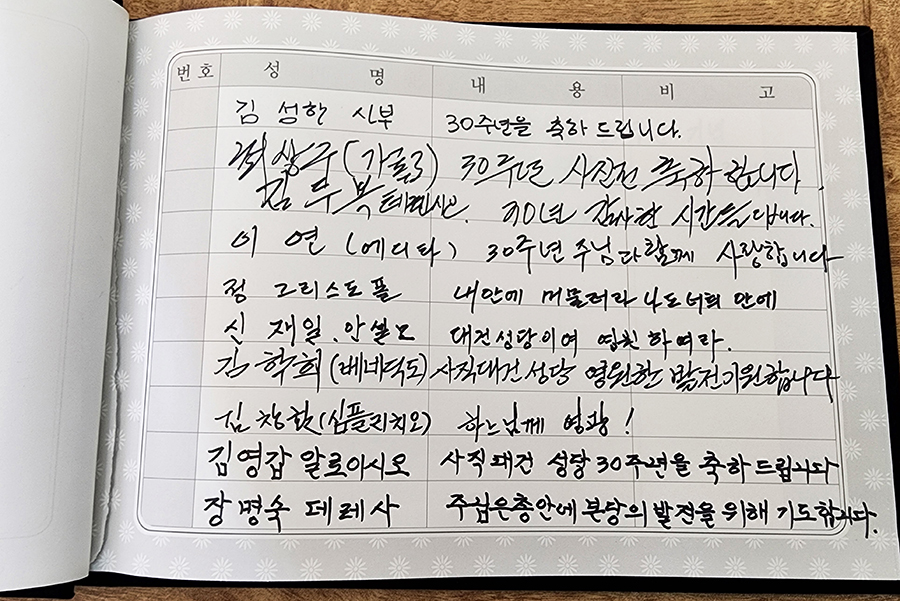 번호 성 명 내 용 비 고
김 성한 신부 30주년을 축하 드립니다.
최상주(가롤로) 30주년 사진전 축하 합니다.
김 두 복 30년 감사한 시간들 입니다.
이 연 (에디타) 30주년 주님과 함께 사랑합니다
정 그리스도폴 내안에 머물러라 나도 너희 안에
신 재일. 안셀모 대건성당이여 영원 하여라.
김학희(베네딕도) 사직대건성당 영원한 발전기원합니다
김창환(심플리치오) 하느님께 영광!
김영갑 알로이시오 사직대건 성당 30주년을 축하드립니다
장명숙 데레사 주님은총안에 본당의 발전을 위해 기도합니다.